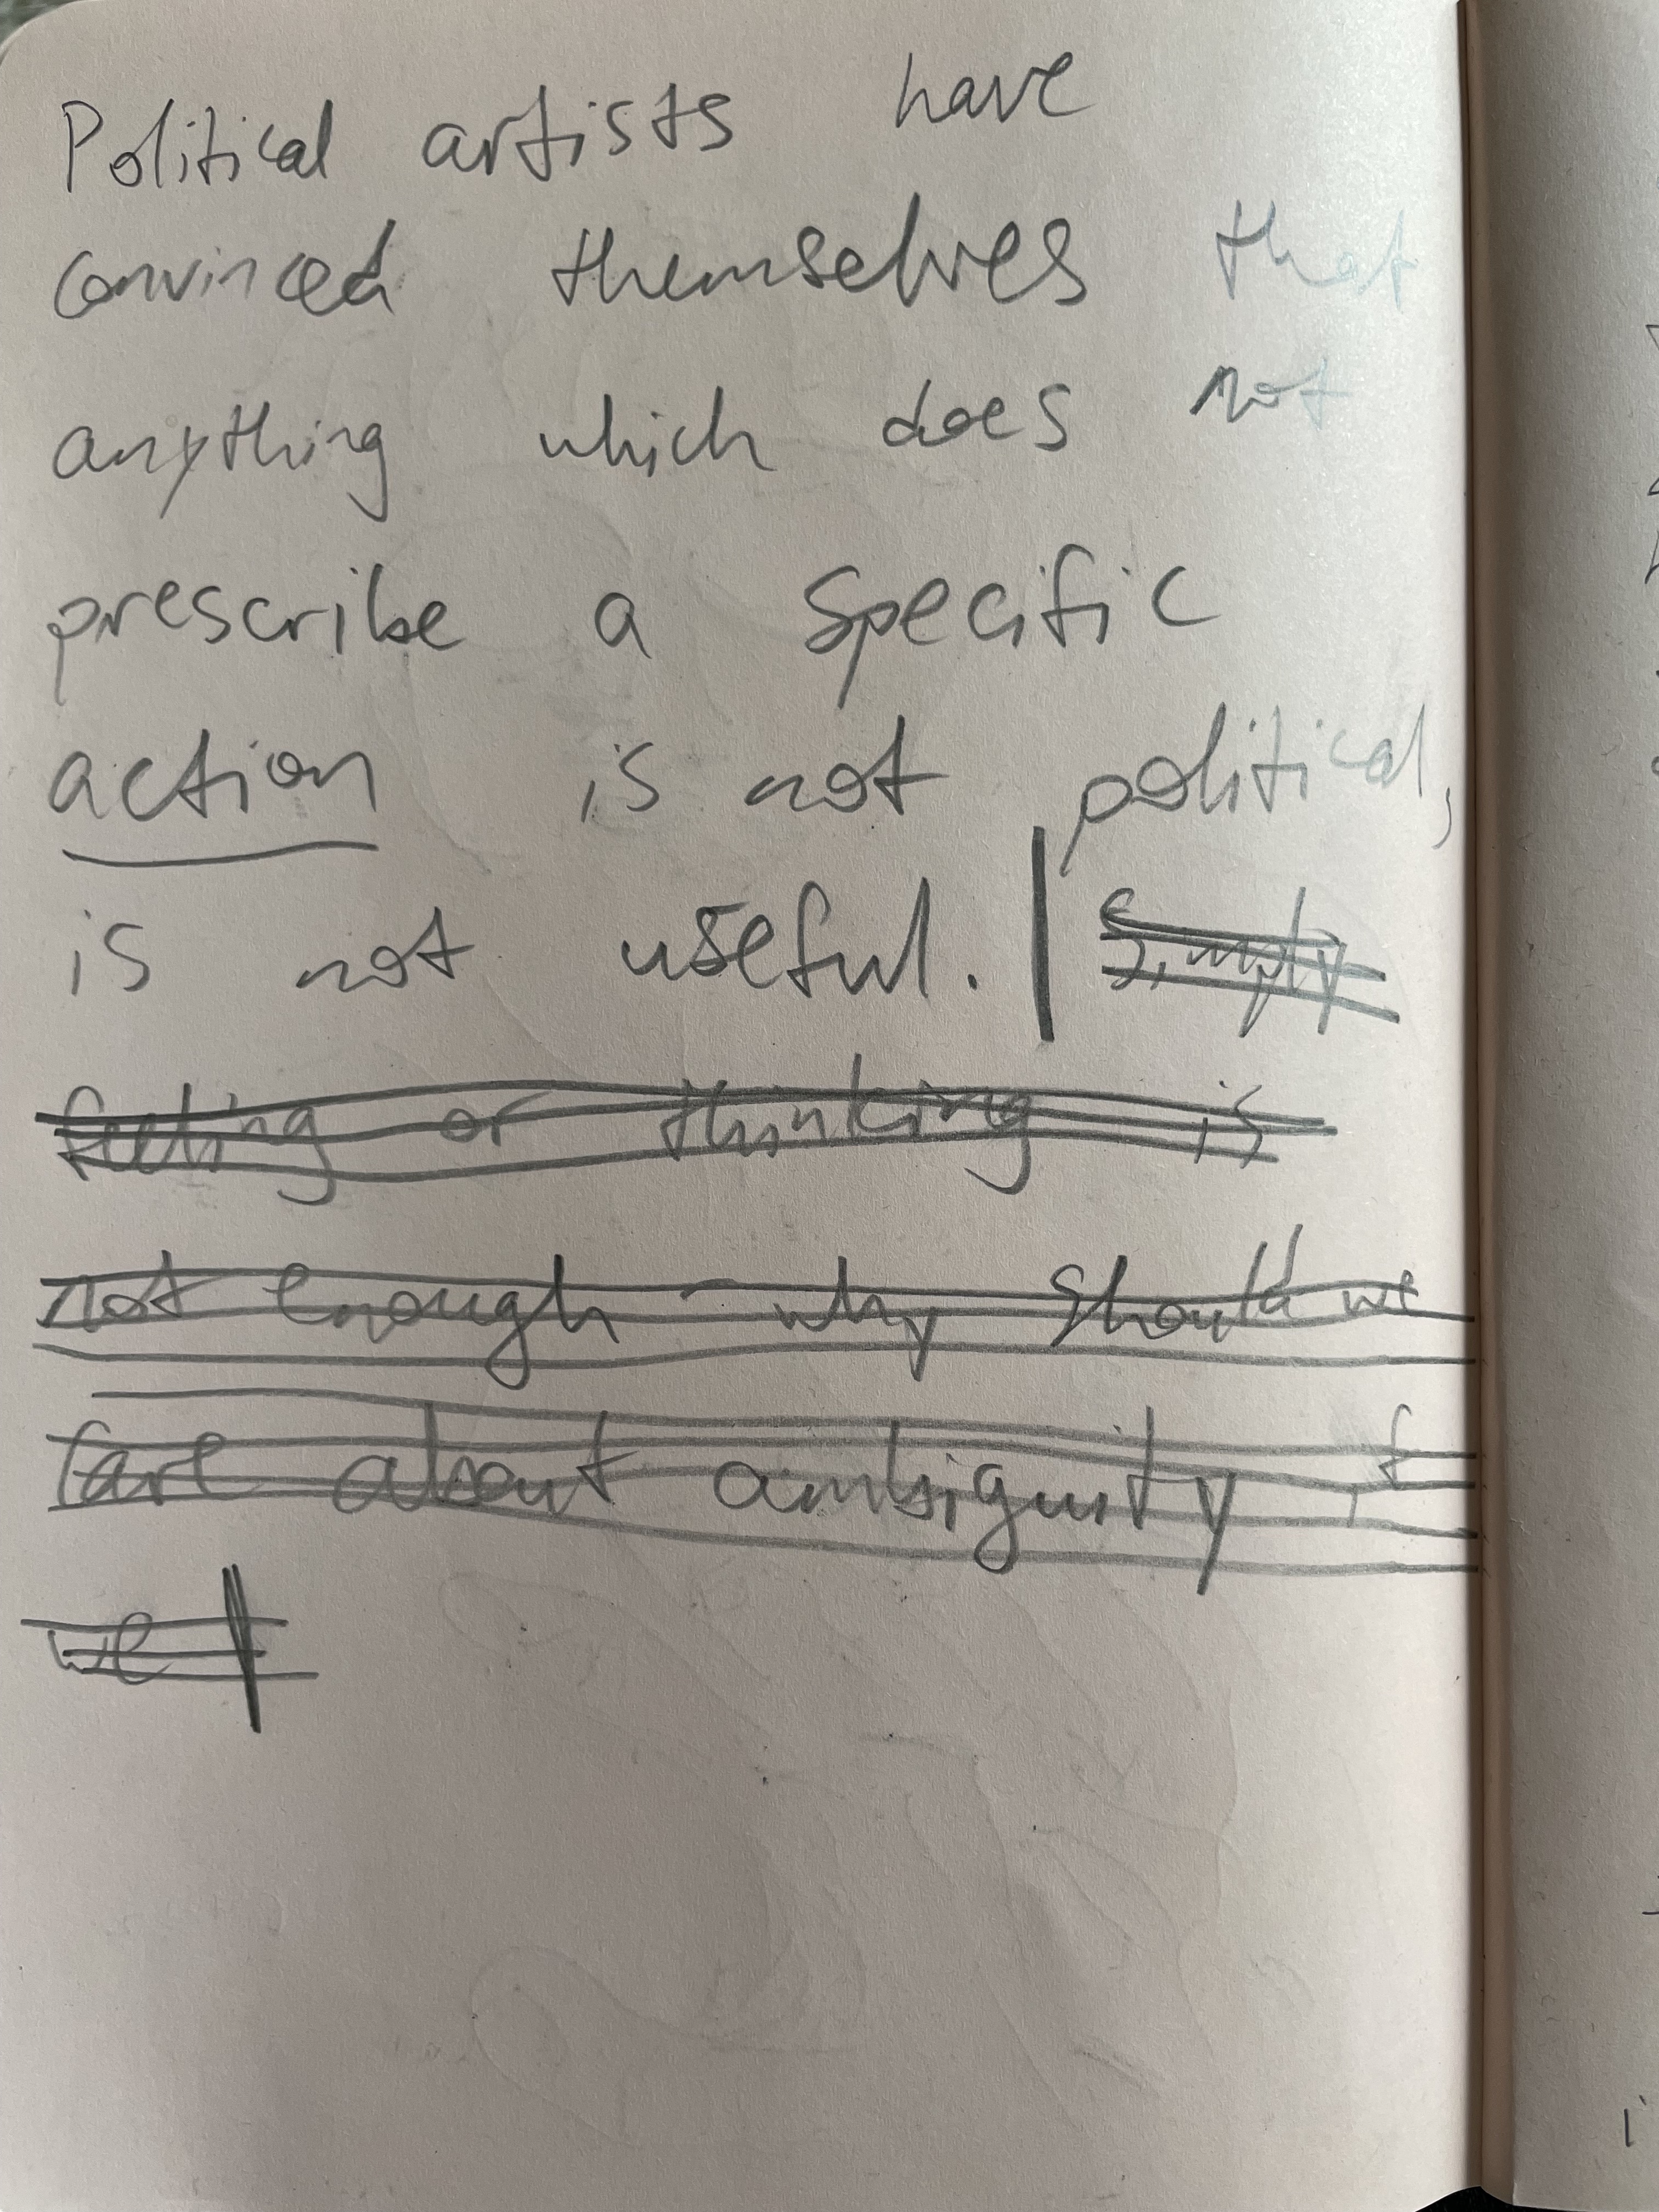 Political artists have
convinced themselves that
anything which does not
prescribe a specific
action is not political,
is not useful. | Simply
feeling or thinking is
not enough - why should we
care about ambiguity, if
we